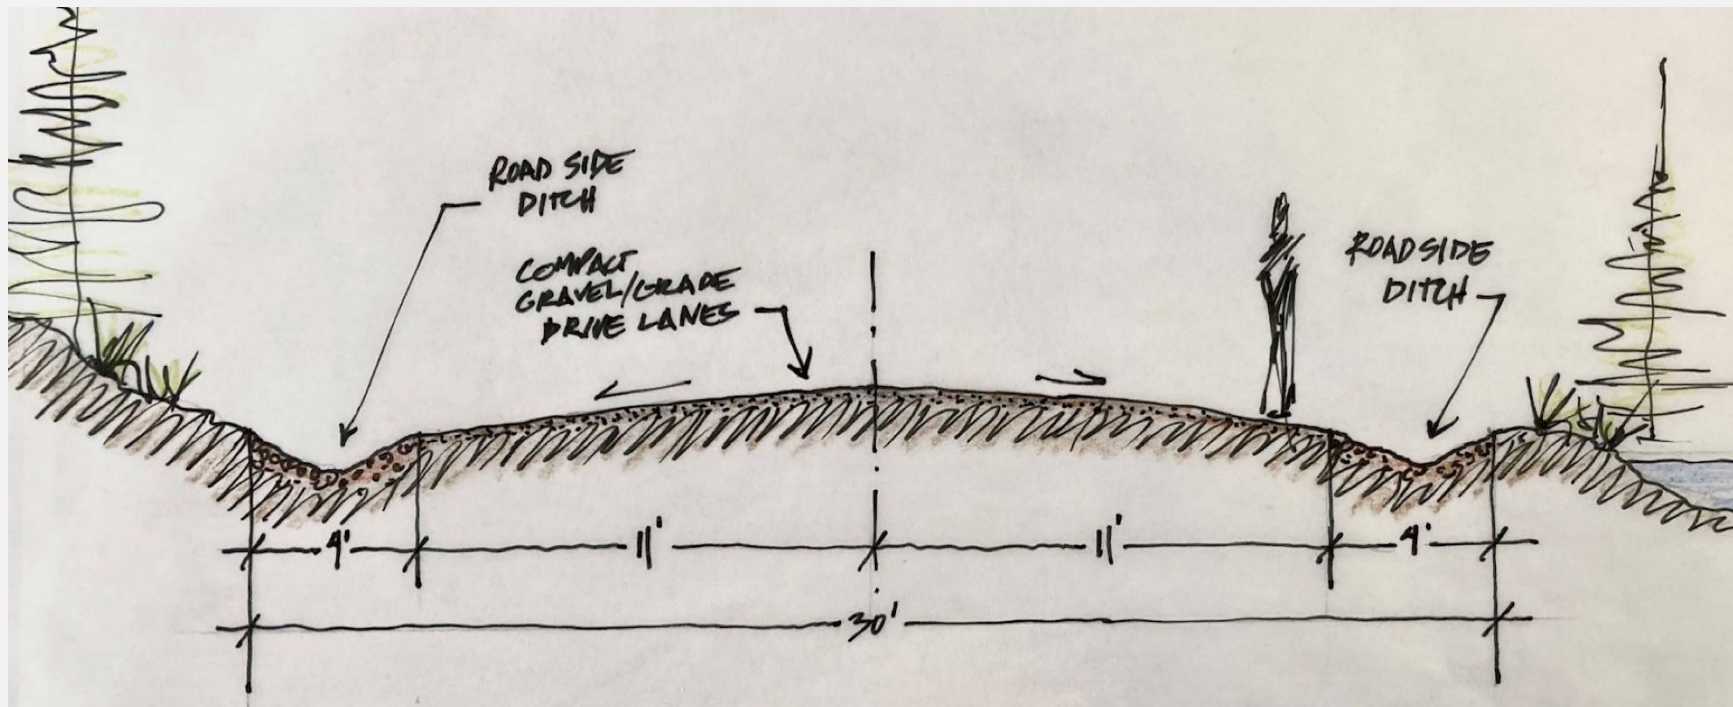 ROAD SIDE
DITCH
COMPACT
GRAVEL/GRADE
DRIVE LANES
ROADSIDE
DITCH
4'
11'
11'
4'
30'